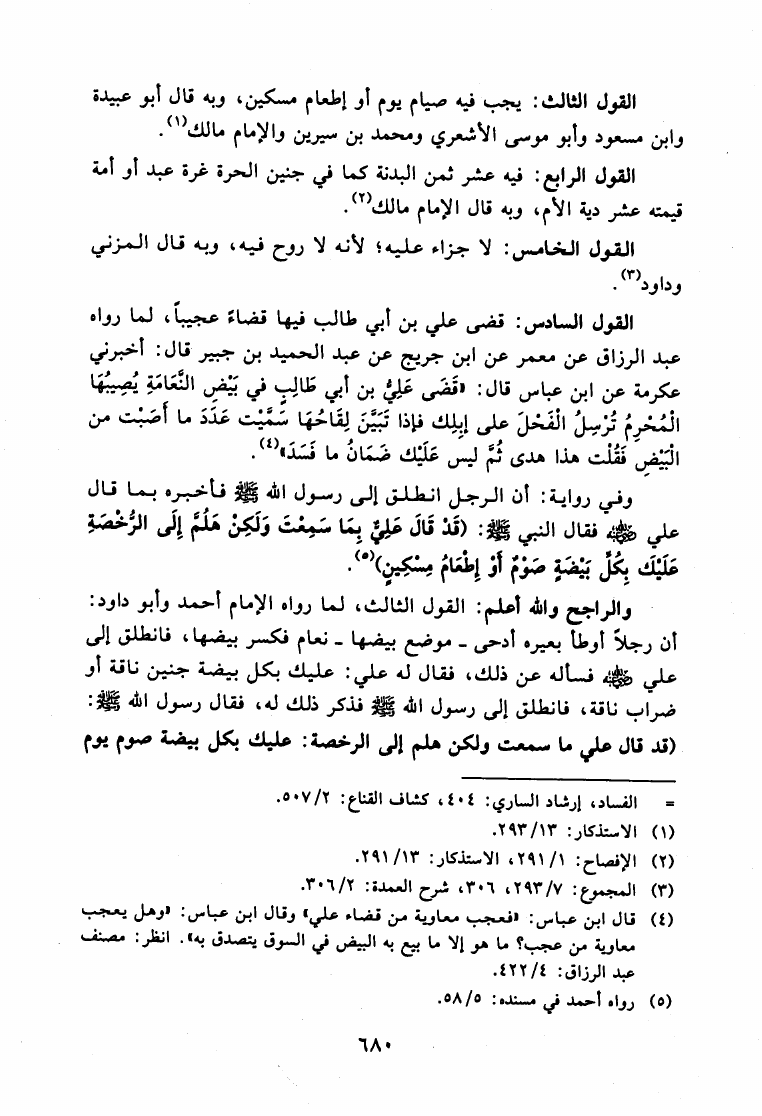 القول الثالث: يجب فيه صيام يوم أو إطعام مسكين، وبه قال أبو عبيدة
وابن مسعود وأبو موسى الأشعري ومحمد بن سيرين والإمام مالك(١).
القول الرابع: فيه عشر ثمن البدنة كما في جنين الحرة غرة عبد أو أمة
قيمته عشر دية الأم، وبه قال الإمام مالك(٢).
القول الخامس: لا جزاء عليه؛ لأنه لا روح فيه، وبه قال المزني
وداود(٣).
القول السادس: قضى علي بن أبي طالب فيها قضاءً عجيباً، لما رواه
عبد الرزاق عن معمر عن ابن جريج عن عبد الحميد بن جبير قال: أخبرني
عكرمة عن ابن عباس قال: «قَضَى عَلِيُّ بن أبي طَالِبٍ في بَيْضِ النَّعَامَةِ يُصِيبُهَا
الْمُحْرِمُ تُرْسِلُ الْفَحْلَ على إِبِلِك فإذا تَبَيَّنَ لِقَاحُهَا سَمَّيْت عَدَدَ ما أَصَبْت من
الْبَيْضِ فَقُلْت هذا هدى ثُمَّ ليس عَلَيْك ضَمَانُ ما فَسَدَ»(٤).
وفي رواية: أن الرجل انطلق إلى رسول الله ﷺ فأخبره بما قال
علي رضي الله عنه فقال النبي ﷺ: (قَدْ قَالَ عَلِيٌّ بِمَا سَمِعْتَ وَلَكِنْ هَلُمَّ إِلَى الرُّخْصَةِ
عَلَيْكَ بِكُلِّ بَيْضَةٍ صَوْمٌ أَوْ إِطْعَامُ مِسْكِينٍ)(٥).
والراجح والله أعلم: القول الثالث، لما رواه الإمام أحمد وأبو داود:
أن رجلاً أوطأ بعيره أدحى - موضع بيضها - نعام فكسر بيضها، فانطلق إلى
علي رضي الله عنه فسأله عن ذلك، فقال له علي: عليك بكل بيضة جنين ناقة أو
ضراب ناقة، فانطلق إلى رسول الله ﷺ فذكر ذلك له، فقال رسول الله ﷺ:
(قد قال علي ما سمعت ولكن هلم إلى الرخصة: عليك بكل بيضة صوم يوم
= الفساد، إرشاد الساري: ٤٠٤، كشاف القناع: ٥٠٧/٢.
(١) الاستذكار: ٢٩٣/١٣.
(٢) الإفصاح: ٢٩١/١، الاستذكار: ٢٩١/١٣.
(٣) المجموع: ٢٩٣/٧، ٣٠٦، شرح العمدة: ٣٠٦/٢.
(٤) قال ابن عباس: «فعجب معاوية من قضاء علي» وقال ابن عباس: «وهل يعجب
معاوية من عجب؟ ما هو إلا ما بيع به البيض في السوق يتصدق به». انظر: مصنف
عبد الرزاق: ٤٢٢/٤.
(٥) رواه أحمد في مسنده: ٥٨/٥.
٦٨٠